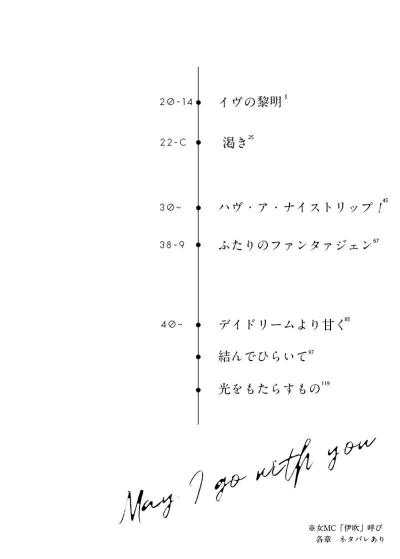 20-14 イヴの黎明 5
22-C 渇き 25
30~ ハヴ・ア・ナイストリップ! 45
38-9 ふたりのファンタァジェン 67
40~ デイドリームより甘く 85
結んでひらいて 97
光をもたらすもの 119
May I go with you
※女MC「伊吹」呼び
各章 ネタバレあり